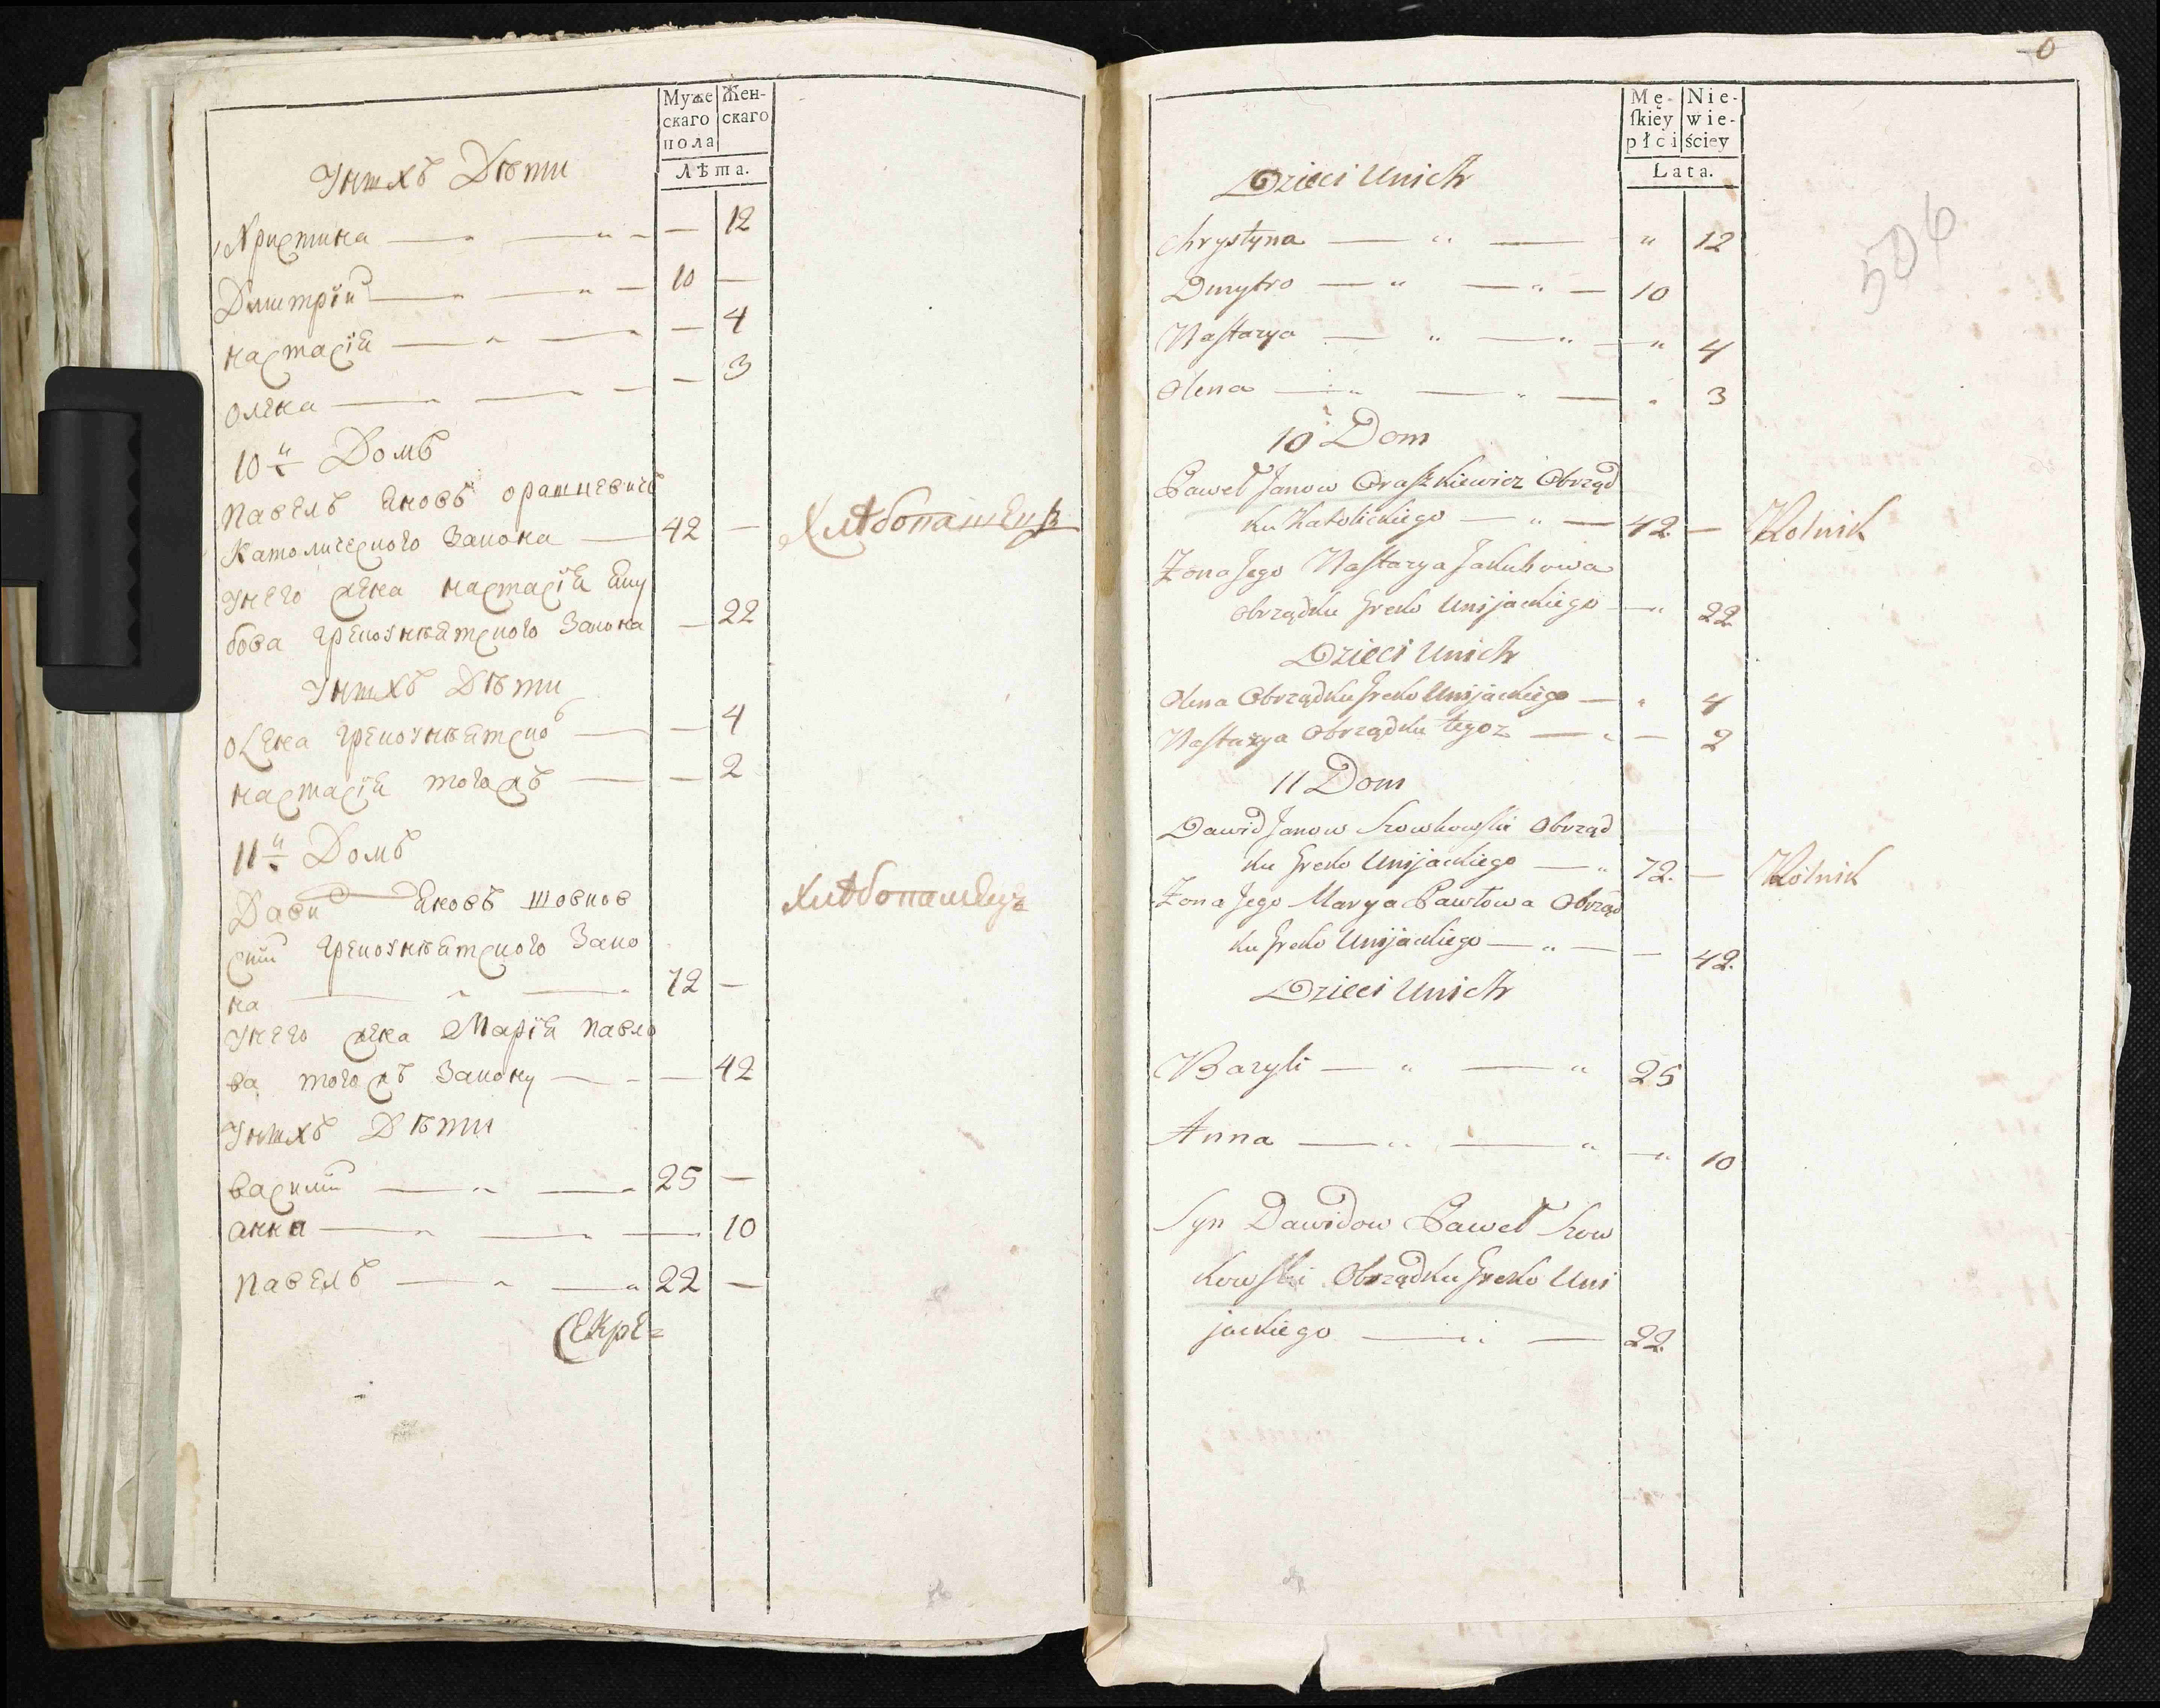 Муже Жен-
скаго скаго
пола
Лѣта.
Унихъ Дѣти
Христина — „ — „ — — 12
Дмитрїй — „ — „ — 10 —
настасїя — „ — „ — 4
олена — „ — „ — — 3
10й Домъ
Павелъ Яновъ орашкевичъ
Католического Закона — 42 — Хлѣбопашецъ
Унего жена настасїя яку
бова грекоунѣятского Закона — 22
Унихъ Дѣти
олена грекоунѣятског — — 4
настасїя тогожъ — — 2
11й Домъ
Дави Яновъ шовков
ский грекоунѣятского Зако Хлѣбопашецъ
на — „ — „ 72 —
Унего жена Марїя павло
ва тогожъ Закону — - — 42
Унихъ Дѣти
василий — „ — „ 25 —
анна — „ — „ — 10
павелъ — „ — „ 22 —
Секре=
0
Mę- Nie-
ſkiey wie-
płci ściey
Lata.
506
Dzieci Unich
Chrystyna — „ — „ 12
Dmytro — „ — „ — 10
Naſtazya — „ — „ — „ 4
Olena — „ — „ — „ 3
10 Dom
Paweł Janow Oraſzkiewicz Obrząd
ku Katolickiego — „ — 42. — Rolnik
Żona Jego Naſtazya Jakubowa
Obrządku Greko Unijackiego — „ 22.
Dzieci Unich
Olena Obrządku Greko Unijackiego — „ 4
Naſtazya Obrządku tegoz — „ — 2
11 Dom
Dawid Janow Szowkowſki Obrząd
ku Greko Unijackiego — „ 72. — Rolnik
Żona Jego Marya Pawłowa Obrząd
ku Greko Unijackiego — „ — — 42.
Dzieci Unich
Bazyli — „ — „ 25
Anna — „ — „ — „ 10
Syn Dawidow Paweł Szow
kowſki Obrządku Greko Uni
jackiego — „ — 22.